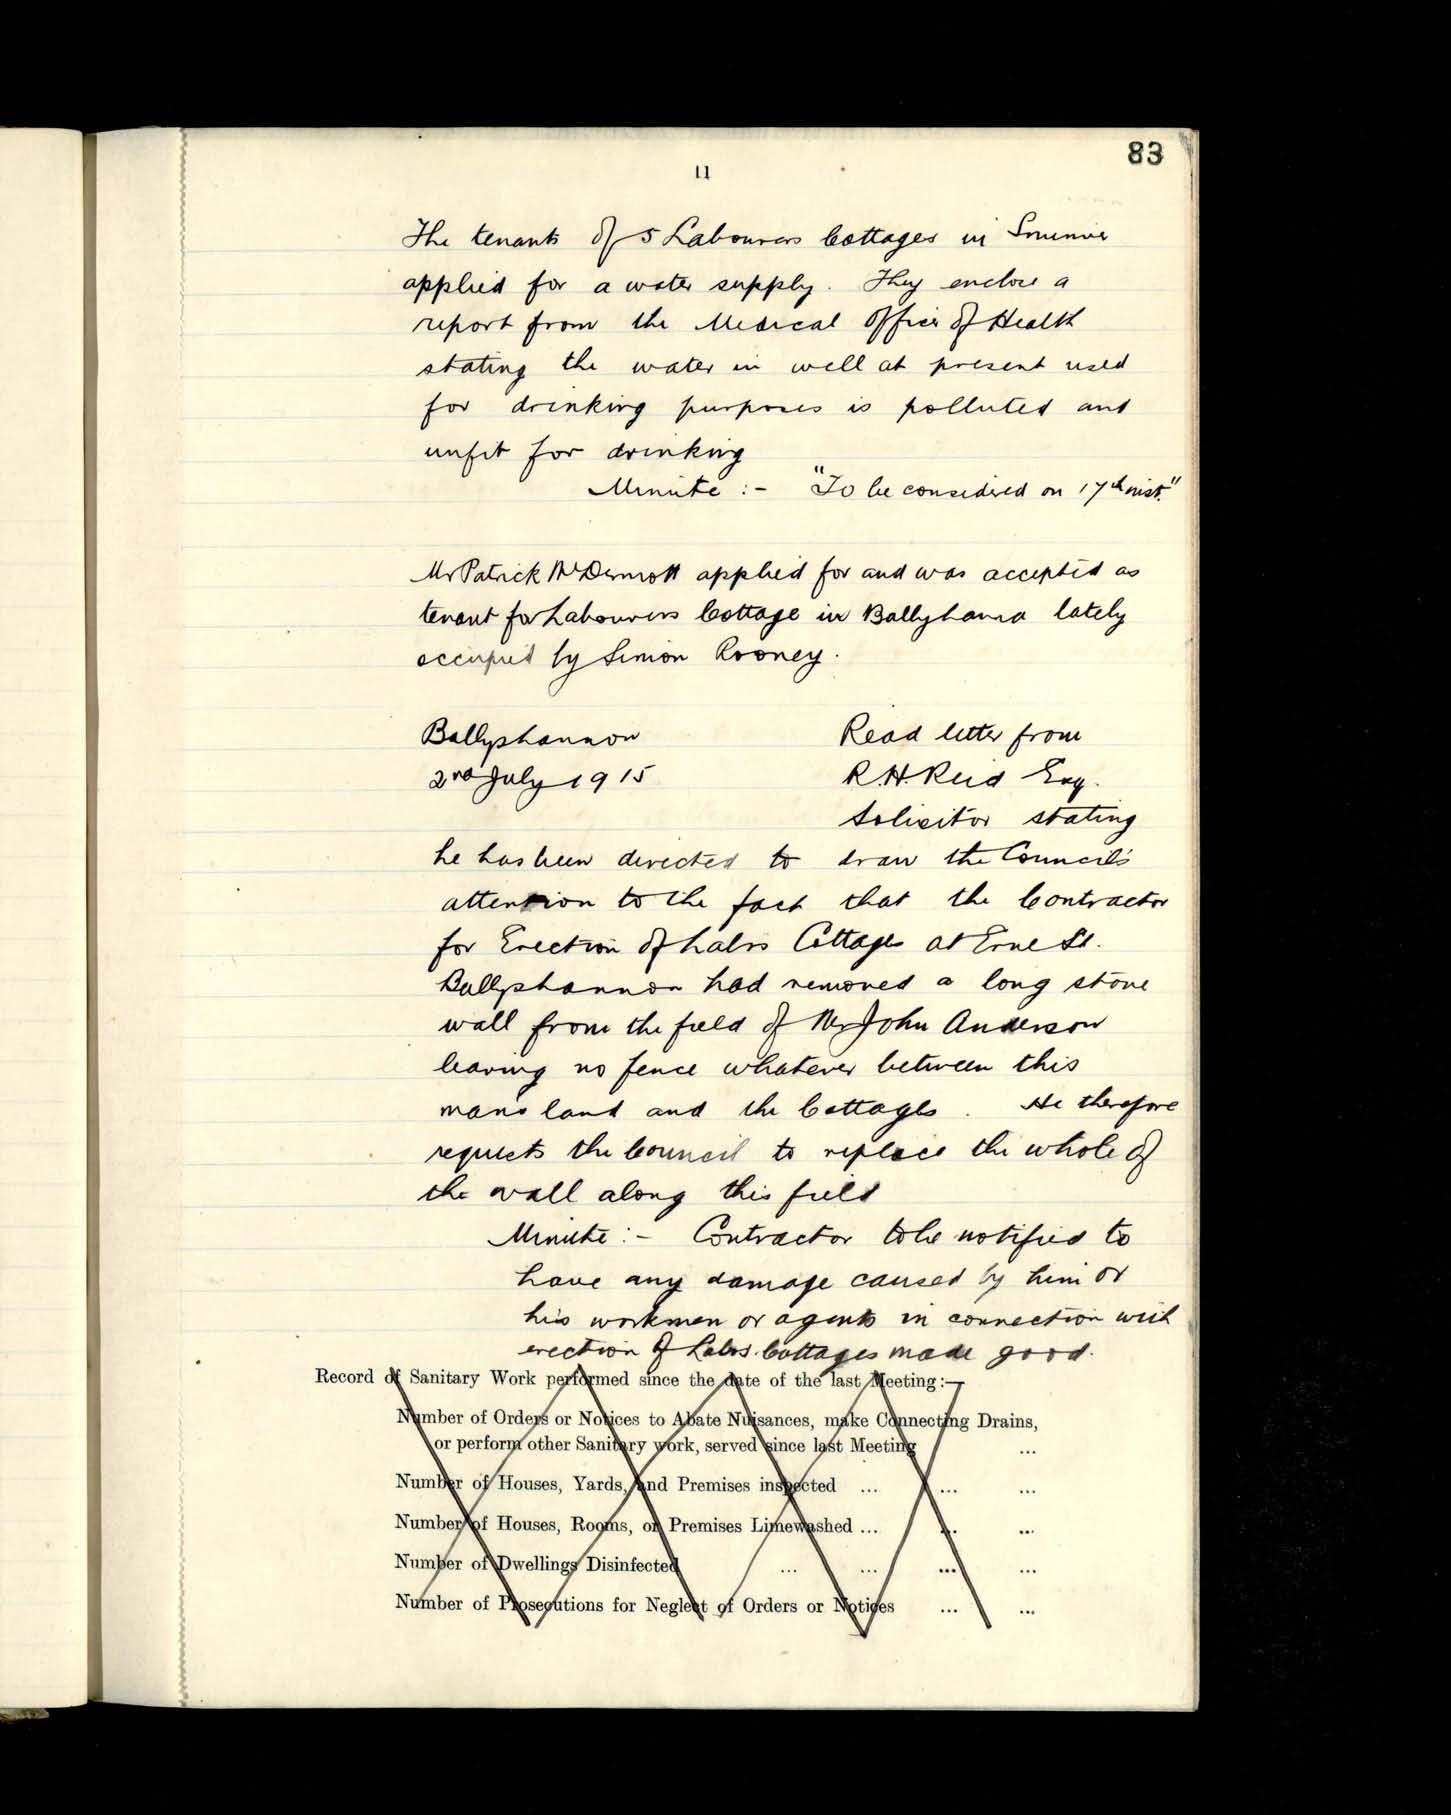 83
11
The tenants of 5 Labourers Cottages in
applied for a water supply. They enclose a
report from the Medical Officer of Health
stating the water in well at present used
for drinking purposes is polluted and
unfit for drinking
Minute :- "To be considered on 17th inst."
Mr Patrick McDermott applied for and was accepted as
tenant for Labourers Cottage in Ballyhanna lately
occupied by Simon Rooney.
Ballyshannon Read letter from
2nd July 1915 R.H. Reid Esq.
Solicitor stating
he has been directed to draw the Council's
attention to the fact that the Contractor
for Erection of Labrs Cottages at Erne St.
Ballyshannon had removed a long stone
wall from the field of Mr John Anderson
leaving no fence whatever between this
mans land and the Cottages. He therefore
requests the Council to replace the whole of
the wall along this field
Minute :- Contractor to be notified to
have any damage caused by him or
his workmen or agents in connection with
erection of Labrs. Cottages made good.
Record of Sanitary Work performed since the date of the last Meeting:—
Number of Orders or Notices to Abate Nuisances, make Connecting Drains,
or perform other Sanitary work, served since last Meeting ...
Number of Houses, Yards, and Premises inspected ... ... ...
Number of Houses, Rooms, or Premises Limewashed ... ... ...
Number of Dwellings Disinfected ... ... ... ...
Number of Prosecutions for Neglect of Orders or Notices ... ...